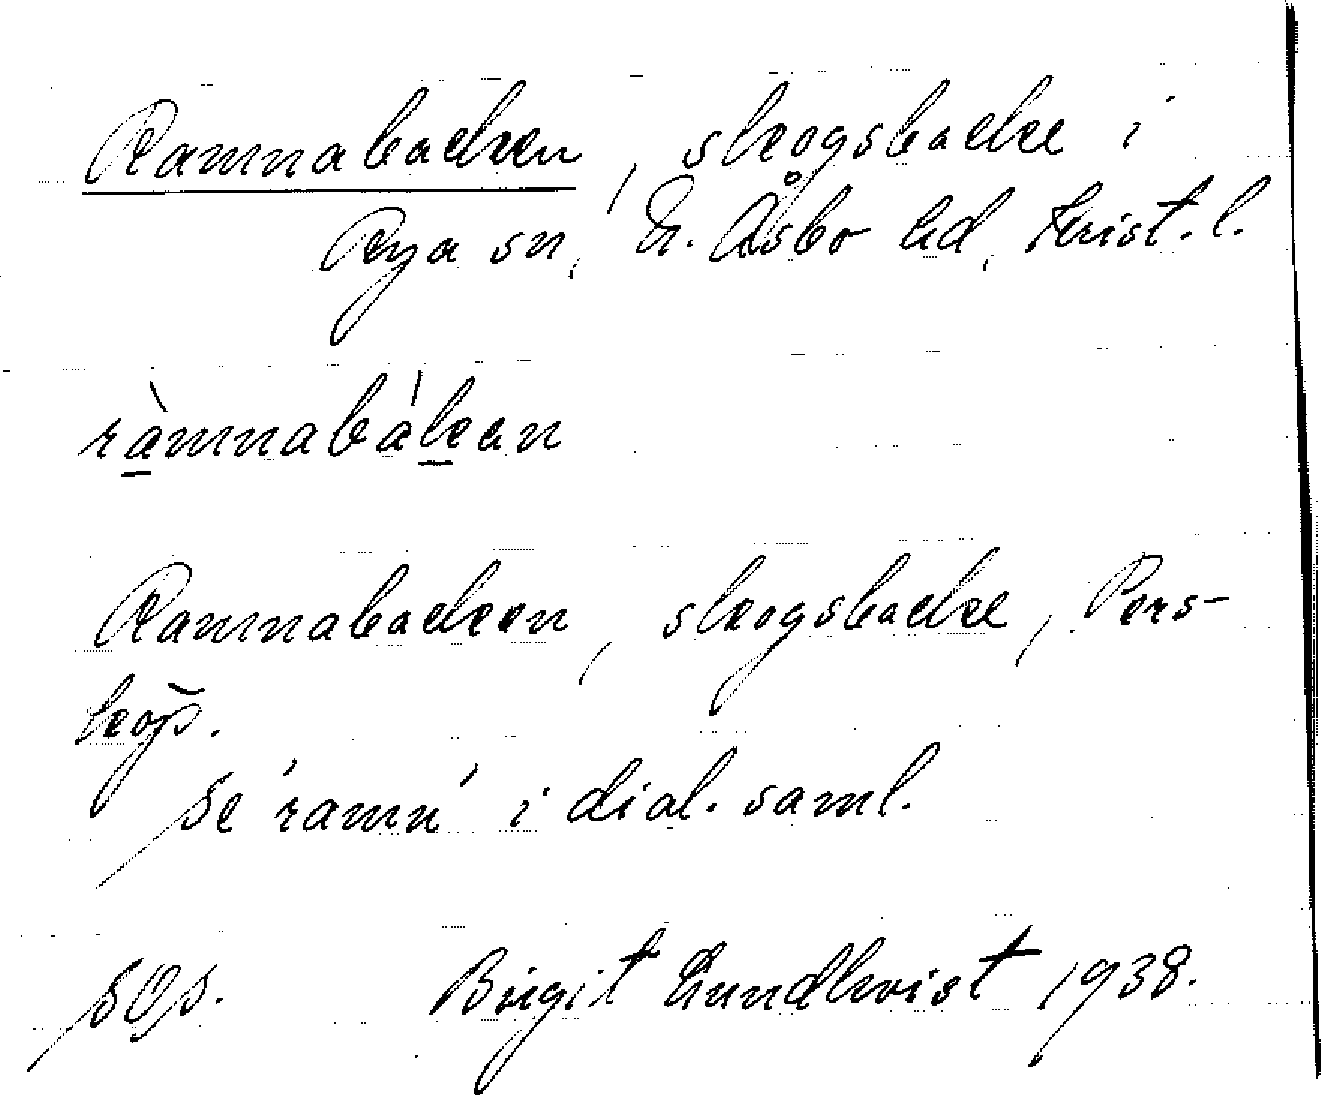 Ramnabacken, skogsbacke i
Rya sn, N. Åsbo hd, Krist. l.
ràmnabákan
Ramnabacken, skogsbacke, Pers-
köp.
Se 'ramn' i dial. saml.
Birgit Lundkvist 1938.